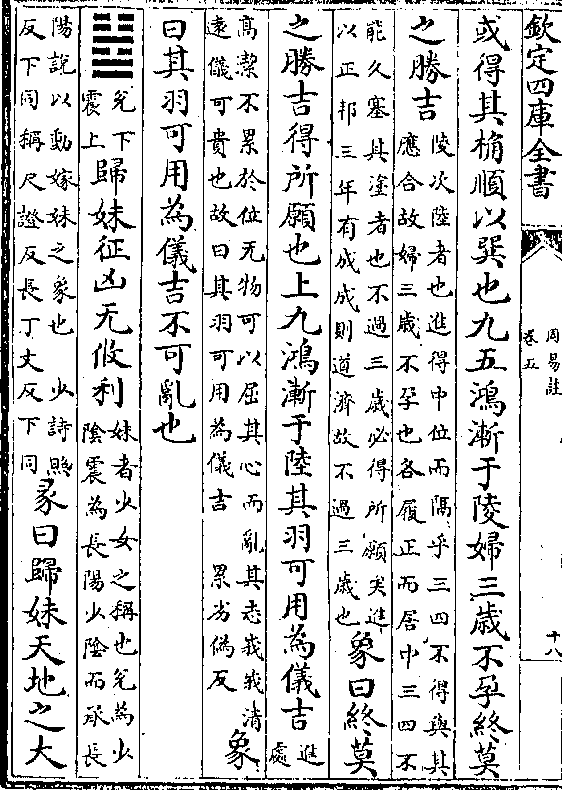 欽定四庫全書
周易註
卷五
十八
或得其桷順以巽也九五鴻漸于陵婦三歲不孕終莫
之勝吉
陵次陸者也進得中位而隔乎三四不得與其
應合故婦三歲不孕也各履正而居中三四不
能久塞其塗者也不過三歲必得所願矣進
以正邦三年有成成則道濟故不過三歲也
象曰終莫
之勝吉得所願也上九鴻漸于陸其羽可用為儀吉
進處
高潔不累於位无物可以屈其心而亂其志峩峩清
遠儀可貴也故曰其羽可用為儀吉 累劣偽反
象
曰其羽可用為儀吉不可亂也
兌下
震上
歸妹征凶无攸利
妹者少女之稱也兌為少
陰震為長陽少陰而承長
陽說以動嫁妹之象也 少詩照
反下同稱尺證反長丁丈反下同
彖曰歸妹天地之大